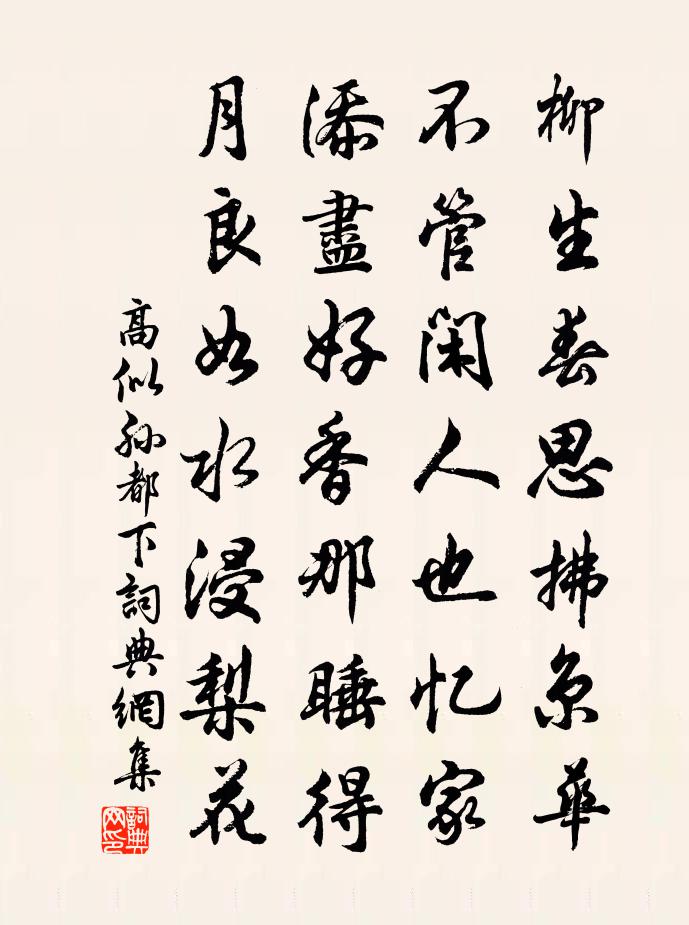 柳生春思拂京華
不管閑人也忆家
添盡好香那睡得
月良如水浸梨花
高似孫都下詞典網集
詞典網印